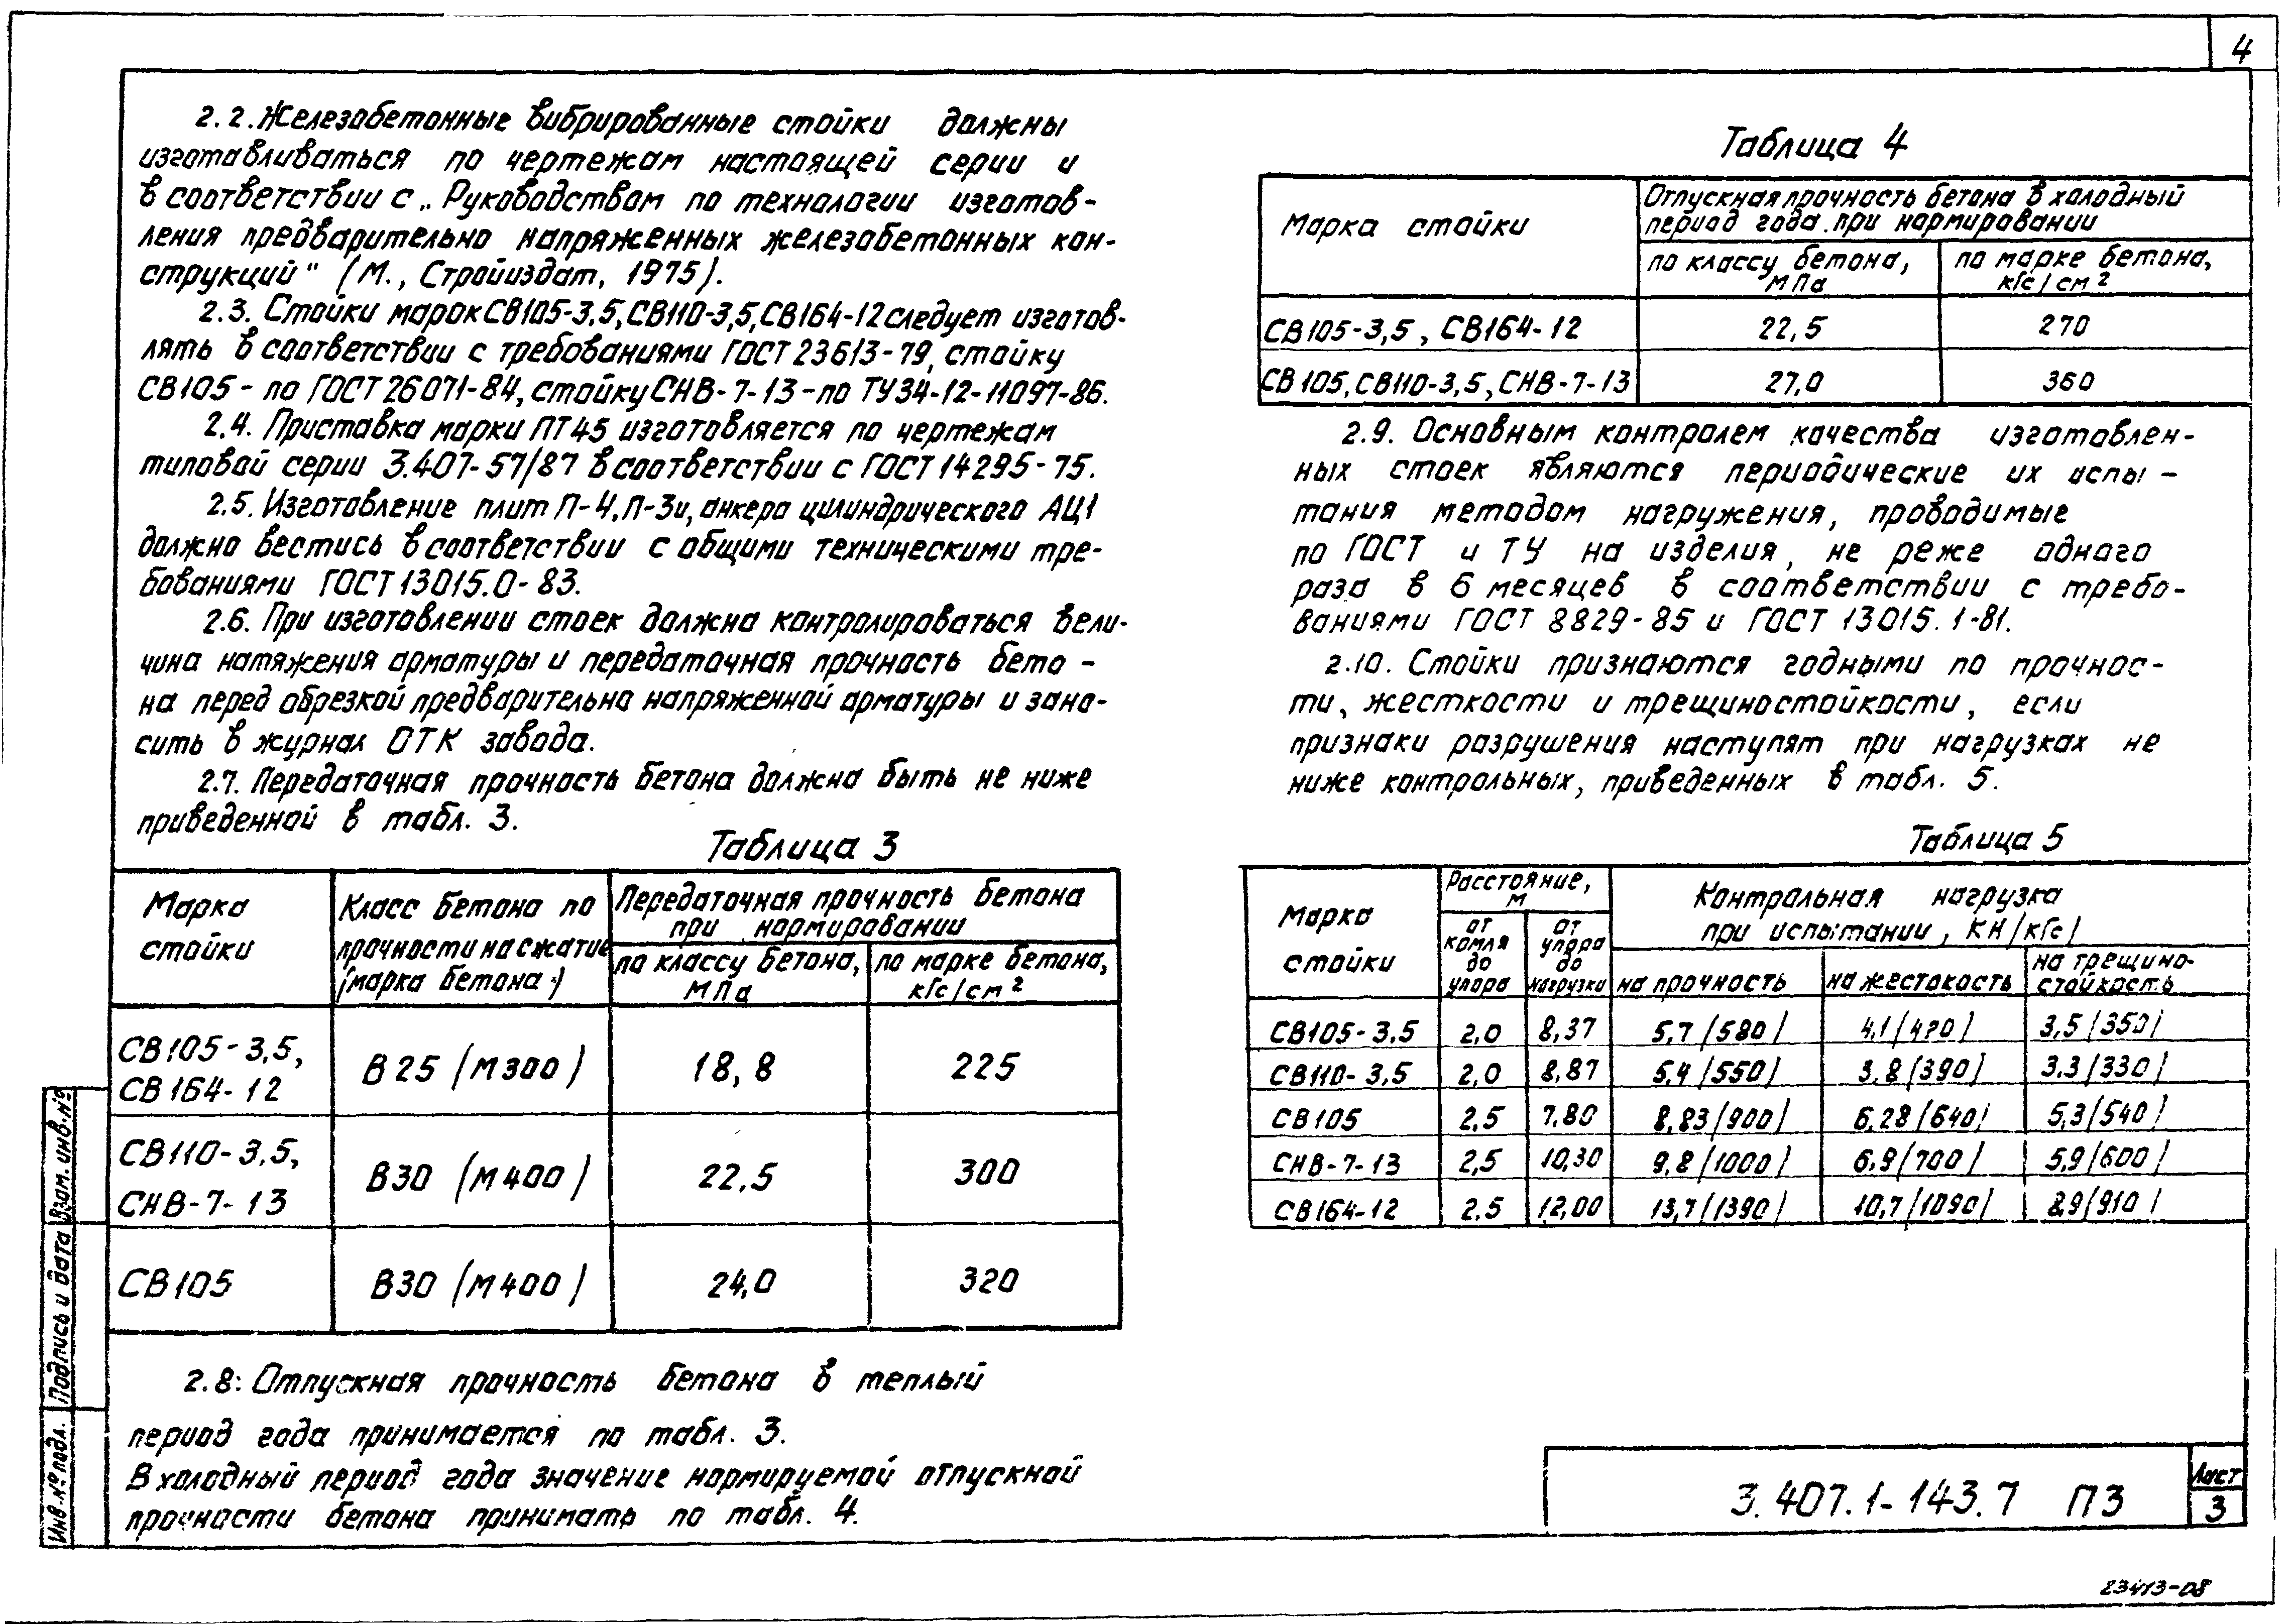 4
2.2. Железобетонные вибрированные стойки должны
изготавливаться по чертежам настоящей серии и
в соответствии с „Руководством по технологии изготов-
ления предварительно напряженных железобетонных кон-
струкций" (М., Стройиздат, 1975).
2.3. Стойки марок СВ105-3,5, СВ110-3,5, СВ164-12 следует изготов-
лять в соответствии с требованиями ГОСТ 23613-79, стойку
СВ105 - по ГОСТ 26071-84, стойку СНВ-7-13 - по ТУ34-12-11097-86.
2.4. Приставка марки ПТ45 изготовляется по чертежам
типовой серии 3.407-57/87 в соответствии с ГОСТ 14295-75.
2.5. Изготовление плит П-4, П-3и, анкера цилиндрического АЦ1
должно вестись в соответствии с общими техническими тре-
бованиями ГОСТ 13015.0-83.
2.6. При изготовлении стоек должна контролироваться вели-
чина натяжения арматуры и передаточная прочность бето-
на перед обрезкой предварительно напряженной арматуры и зано-
сить в журнал ОТК завода.
2.7. Передаточная прочность бетона должна быть не ниже
приведенной в табл. 3.
Таблица 3
Марка стойки | Класс бетона по прочности на сжатие (марка бетона) | Передаточная прочность бетона при нормировании
по классу бетона, МПа | по марке бетона, кГс/см²
СВ105-3,5, СВ164-12 | В25 (М300) | 18,8 | 225
СВ110-3,5, СНВ-7-13 | В30 (М400) | 22,5 | 300
СВ105 | В30 (М400) | 24,0 | 320
2.8. Отпускная прочность бетона в теплый
период года принимается по табл. 3.
В холодный период года значение нормируемой отпускной
прочности бетона принимать по табл. 4.
Таблица 4
Марка стойки | Отпускная прочность бетона в холодный период года при нормировании
по классу бетона, МПа | по марке бетона, кГс/см²
СВ105-3,5, СВ164-12 | 22,5 | 270
СВ105, СВ110-3,5, СНВ-7-13 | 27,0 | 360
2.9. Основным контролем качества изготовлен-
ных стоек являются периодические их испы-
тания методом нагружения, проводимые
по ГОСТ и ТУ на изделия, не реже одного
раза в 6 месяцев в соответствии с требо-
ваниями ГОСТ 8829-85 и ГОСТ 13015.1-81.
2.10. Стойки признаются годными по прочнос-
ти, жесткости и трещиностойкости, если
признаки разрушения наступят при нагрузках не
ниже контрольных, приведенных в табл. 5.
Таблица 5
Марка стойки | Расстояние, м | Контрольная нагрузка при испытании, КН/кГс/
от комля до упора | от упора до нагрузки | на прочность | на жестокость | на трещиностойкость
СВ105-3,5 | 2,0 | 8,37 | 5,7/580/ | 4,1/420/ | 3,5/350/
СВ110-3,5 | 2,0 | 8,87 | 5,4/550/ | 3,8/390/ | 3,3/330/
СВ105 | 2,5 | 7,80 | 8,83/900/ | 6,28/640/ | 5,3/540/
СНВ-7-13 | 2,5 | 10,30 | 9,8/1000/ | 6,9/700/ | 5,9/600/
СВ164-12 | 2.5 | 12,00 | 13,7/1390/ | 10,7/1090/ | 8,9/910/
Инв.№ подл. | Подпись и дата | Взам. инв.№
3.407.1-143.7 ПЗ
Лист
3
23413-08